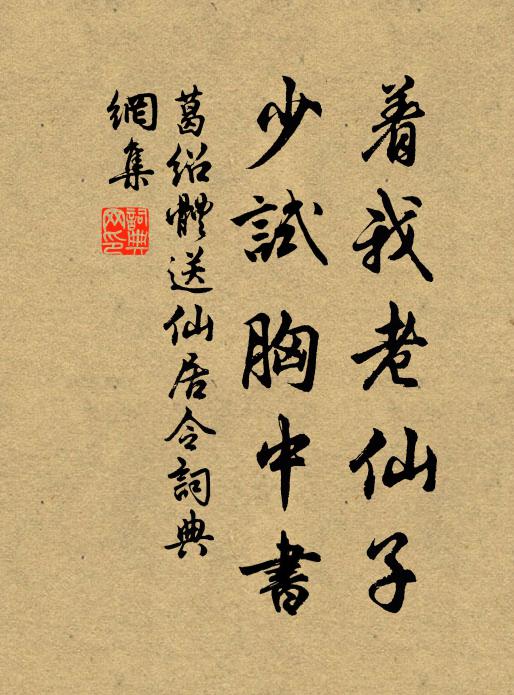 着我老仙子
少試胸中書
葛紹體送仙居令詞典
網集
詞典
网印